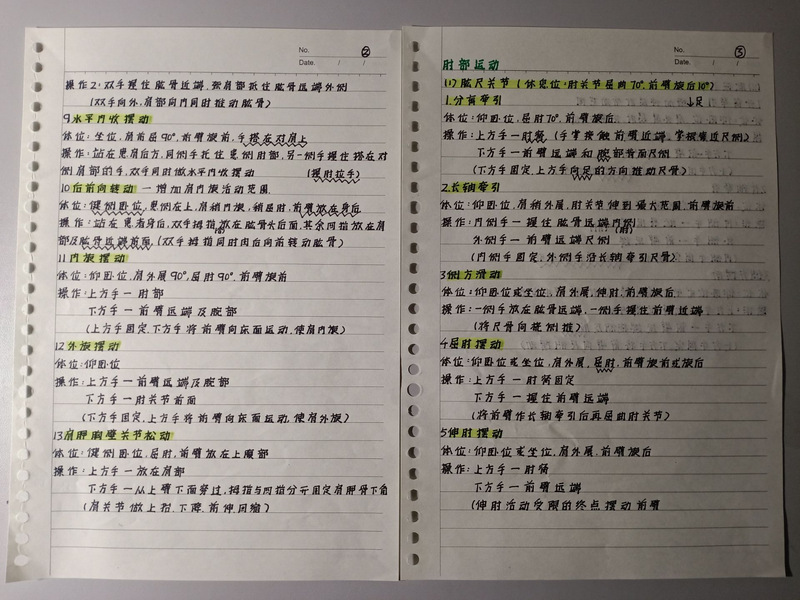 No.
②
Date. / /
操作2:双手握住肱骨近端,张肩部抵住肱骨远端外侧
(双手向外,肩部向内同时推动肱骨)
9水平内收摆动
体位:坐位,肩前屈90°,前臂旋前,手搭在对肩上
操作:站在患肩后方,同侧手托住患侧肘部,另一侧手握住搭在对
侧肩部的手,双手同时做水平内收摆动 (握肘拉手)
10后前向转动 — 增加肩内旋活动范围
体位:健侧卧位,患侧在上,肩稍内旋,稍屈肘,前臂放在身后
操作:站在患者身后,双手拇指放在肱骨头后面,其余四指放在肩
部及肱骨近端前面,(双手拇指同时由后向前转动肱骨)
11内旋摆动
体位:仰卧位,肩外展90°,屈肘90°,前臂旋前
操作:上方手 — 肘部
下方手 — 前臂远端及腕部
(上方手固定,下方手将前臂向床面运动,使肩内旋)
12外旋摆动
体位:仰卧位
操作:上方手 — 前臂远端及腕部
下方手 — 肘关节前面
(下方手固定,上方手将前臂向床面运动,使肩外旋)
13肩胛胸壁关节松动
体位:健侧卧位,屈肘,前臂放在上腹部
操作:上方手 — 放在肩部
下方手 — 从上臂下面穿过,拇指与四指分开固定肩胛骨下角
(肩关节做上抬、下降、前伸回缩)
No.
③
Date. / /
肘部运动
(1)肱尺关节(休息位:肘关节屈曲70°,前臂旋后10°)
1.分离牵引 ↓足
体位:仰卧位,屈肘70°,前臂旋后
操作:上方手 — 肘窝(手掌接触前臂近端,掌根靠近尺侧)
下方手 — 前臂远端和腕部背面尺侧
(下方手固定,上方手向足的方向推动尺骨)
2.长轴牵引
体位:仰卧位,肩稍外展,肘关节伸到最大范围,前臂旋前
操作:内侧手 — 握住肱骨远端内侧
外侧手 — 前臂远端尺侧
(内侧手固定,外侧手沿长轴牵引尺骨)
3侧方滑动
体位:仰卧位或坐位,肩外展,伸肘,前臂旋后
操作:一侧手放在肱骨远端,一侧手握住前臂远端
(将尺骨向桡侧推)
4屈肘摆动
体位:仰卧位或坐位,肩外展,屈肘,前臂旋前或旋后
操作:上方手 — 肘窝固定
下方手 — 握住前臂远端
(将前臂作长轴牵引后再屈曲肘关节)
5伸肘摆动
体位:仰卧位或坐位,肩外展,前臂旋后
操作:上方手 — 肘窝
下方手 — 前臂远端
(伸肘活动受限的终点摆动前臂